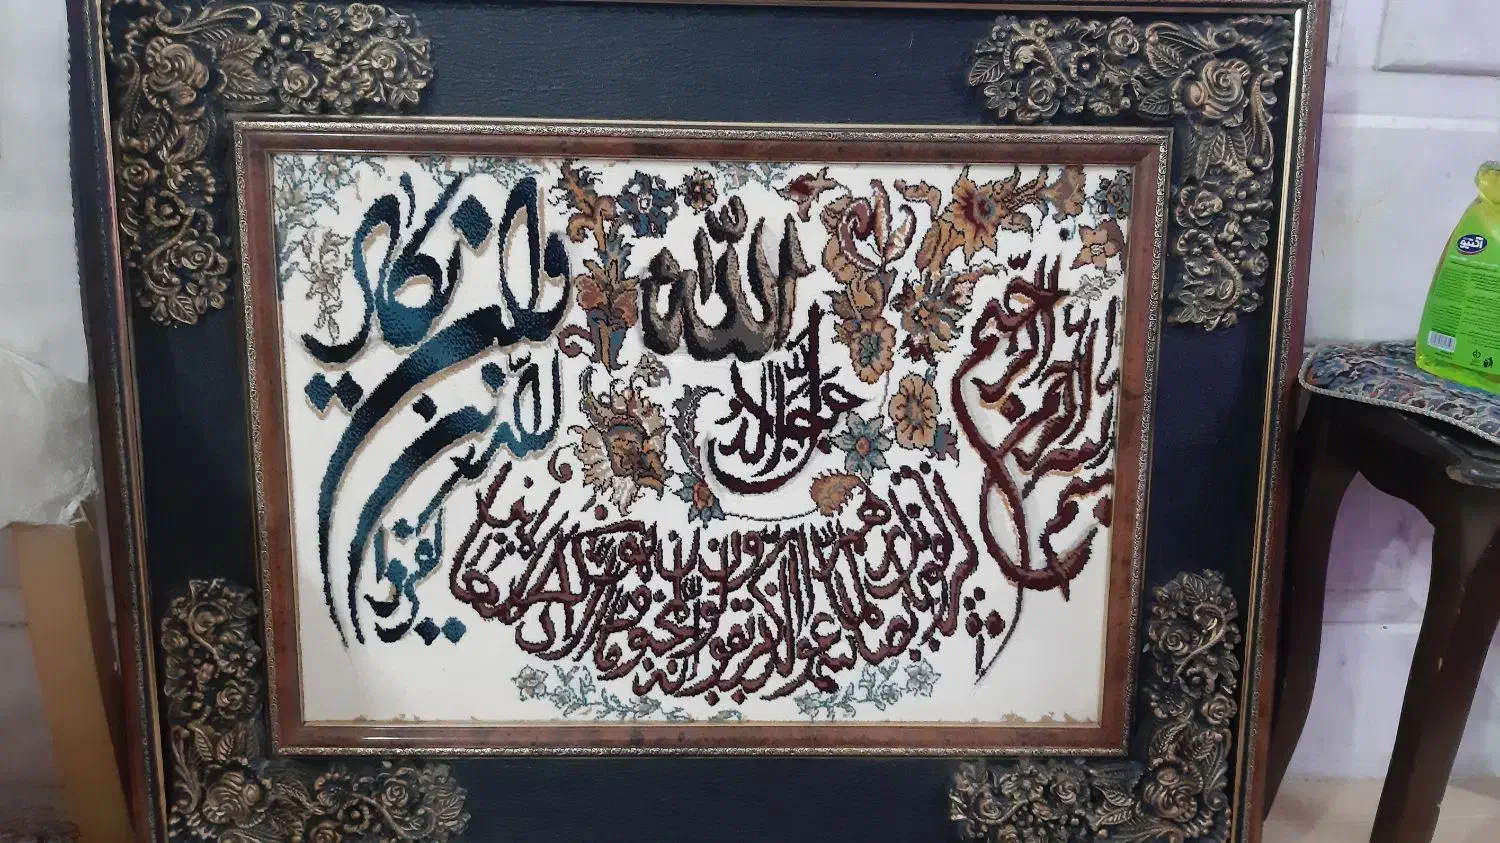 بسم الله الرحمن الرحیم
الله
جل جلاله
وان یکاد
الذین
کفروا
لیزلقونک بابصارهم لما سمعوا الذکر و یقولون انه لمجنون و ما هو الا ذکر للعالمین
اکتیو